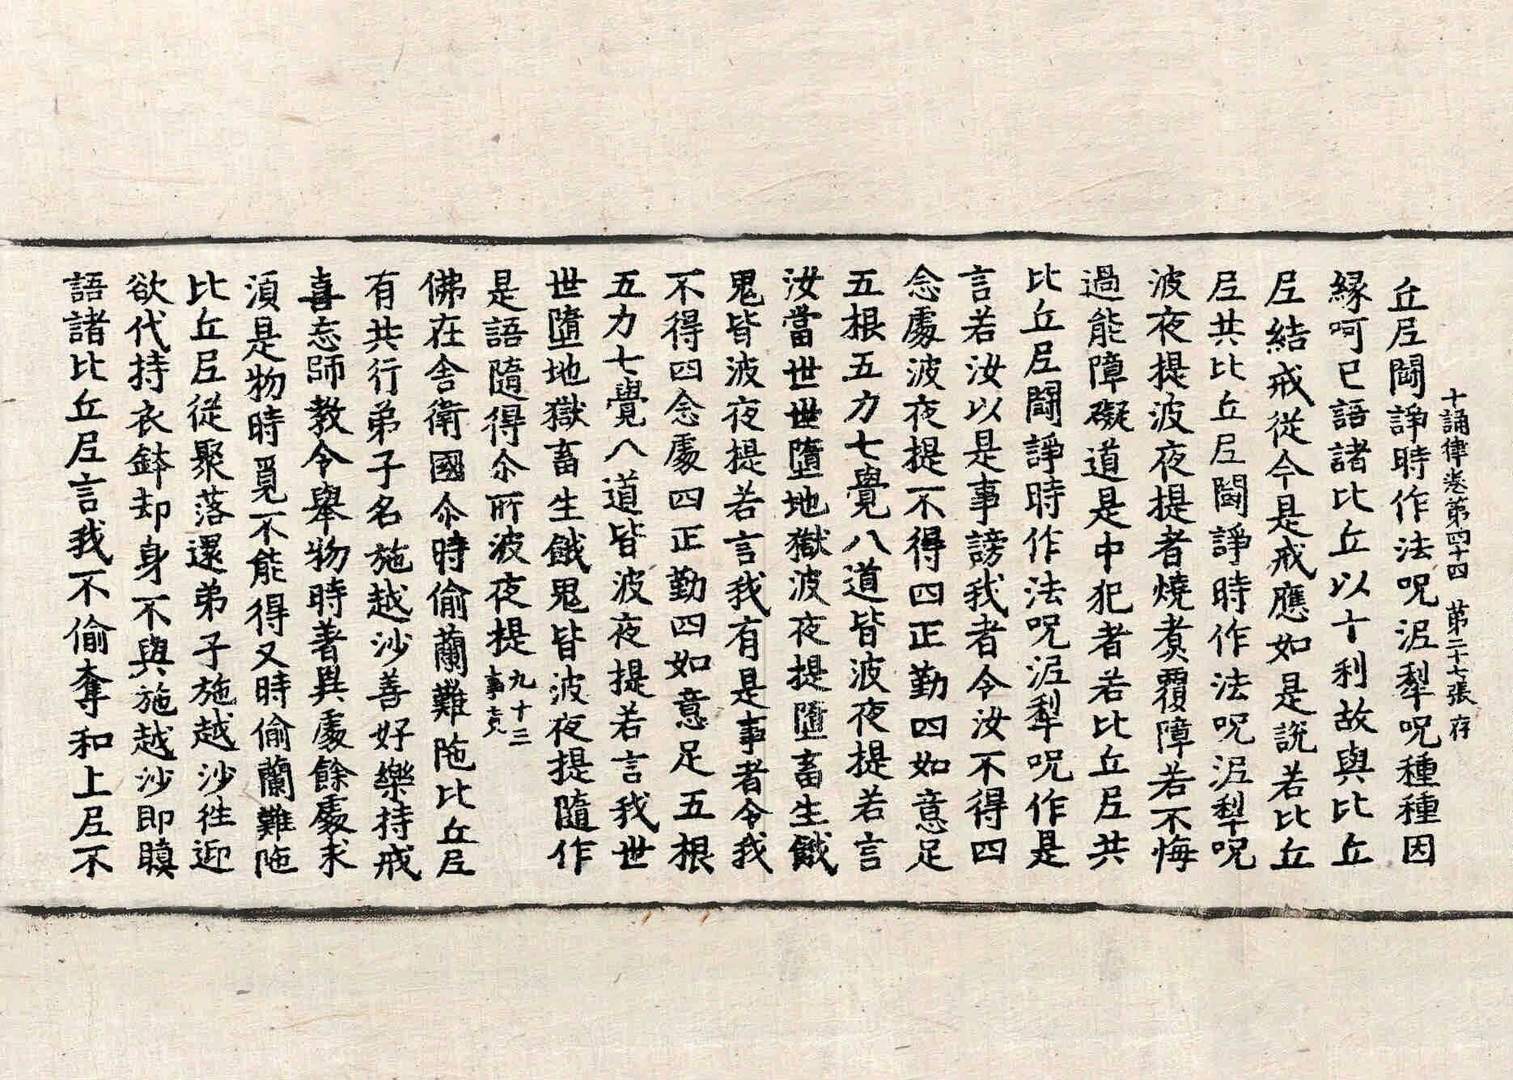 十誦律卷第四十四　苐二十七張　存
丘尼鬪諍時作法呪泥犁呪種種因
縁呵已語諸比丘以十利故與比丘
尼結戒從今是戒應如是說若比丘
尼共比丘尼鬪諍時作法呪泥犁呪
波夜提波夜提者燒煑覆障若不悔
過能障礙道是中犯者若比丘尼共
比丘尼鬪諍時作法呪泥犁呪作是
言若汝以是事謗我者令汝不得四
念處波夜提不得四正勤四如意足
五根五力七覺八道皆波夜提若言
汝當世世墮地獄波夜提墮畜生餓
鬼皆波夜提若言我有是事者令我
不得四念處四正勤四如意足五根
五力七覺八道皆波夜提若言我世
世墮地獄畜生餓鬼皆波夜提隨作
是語隨得尒所波夜提九十三事竟
佛在舍衛國尒時偷蘭難陁比丘尼
有共行弟子名施越沙善好樂持戒
喜忘師教令舉物時著異處餘處求
湏是物時覓不能得又時偷蘭難陁
比丘尼從聚落還弟子施越沙往迎
欲代持衣鉢却身不與施越沙即瞋
語諸比丘尼言我不偷奪和上尼不